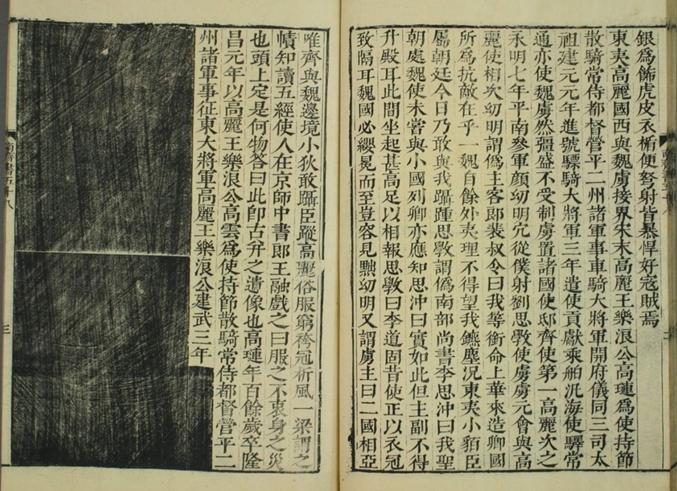 銀爲飾虎皮衣楯便弩射皆暴悍好寇賊焉
東夷高麗國西與魏虜接界宋末高麗王樂浪公高璉爲使持節
散騎常侍都督營平二州諸軍事車騎大將軍開府儀同三司太
祖建元元年進號驃騎大將軍三年遣使貢獻乘舶汎海使驛常
通亦使魏虜然彊盛不受制虜置諸國使邸齊使第一高麗次之
永明七年平南參軍顏幼明冗從僕射劉思斅使虜虜元會與高
麗使相次幼明謂僞主客郎裴叔令曰我等銜命上華來造卿國
所爲抗敵在乎一魏自餘外夷理不得望我鑣塵況東夷小貊臣
屬朝廷今日乃敢與我躡踵思斅謂僞南部尚書李思沖曰我聖
朝處魏使未嘗與小國列卿亦應知思沖曰實如此但主副不得
升殿耳此間坐起甚高足以相報思斅曰李道固昔使正以衣冠
致隔耳魏國必纓冕而至豈容見黜幼明又謂虜主曰二國相亞
唯齊與魏邊境小狄敢躡臣蹤高麗俗服窮袴冠折風一梁謂之
幘知讀五經使人在京師中書郎王融戲之曰服之不衷身之災
也頭上定是何物答曰此即古弁之遺像也高璉年百餘歲卒隆
昌元年以高麗王樂浪公高雲爲使持節散騎常侍都督營平二
州諸軍事征東大將軍高麗王樂浪公建武三年
南齊書五十八
三